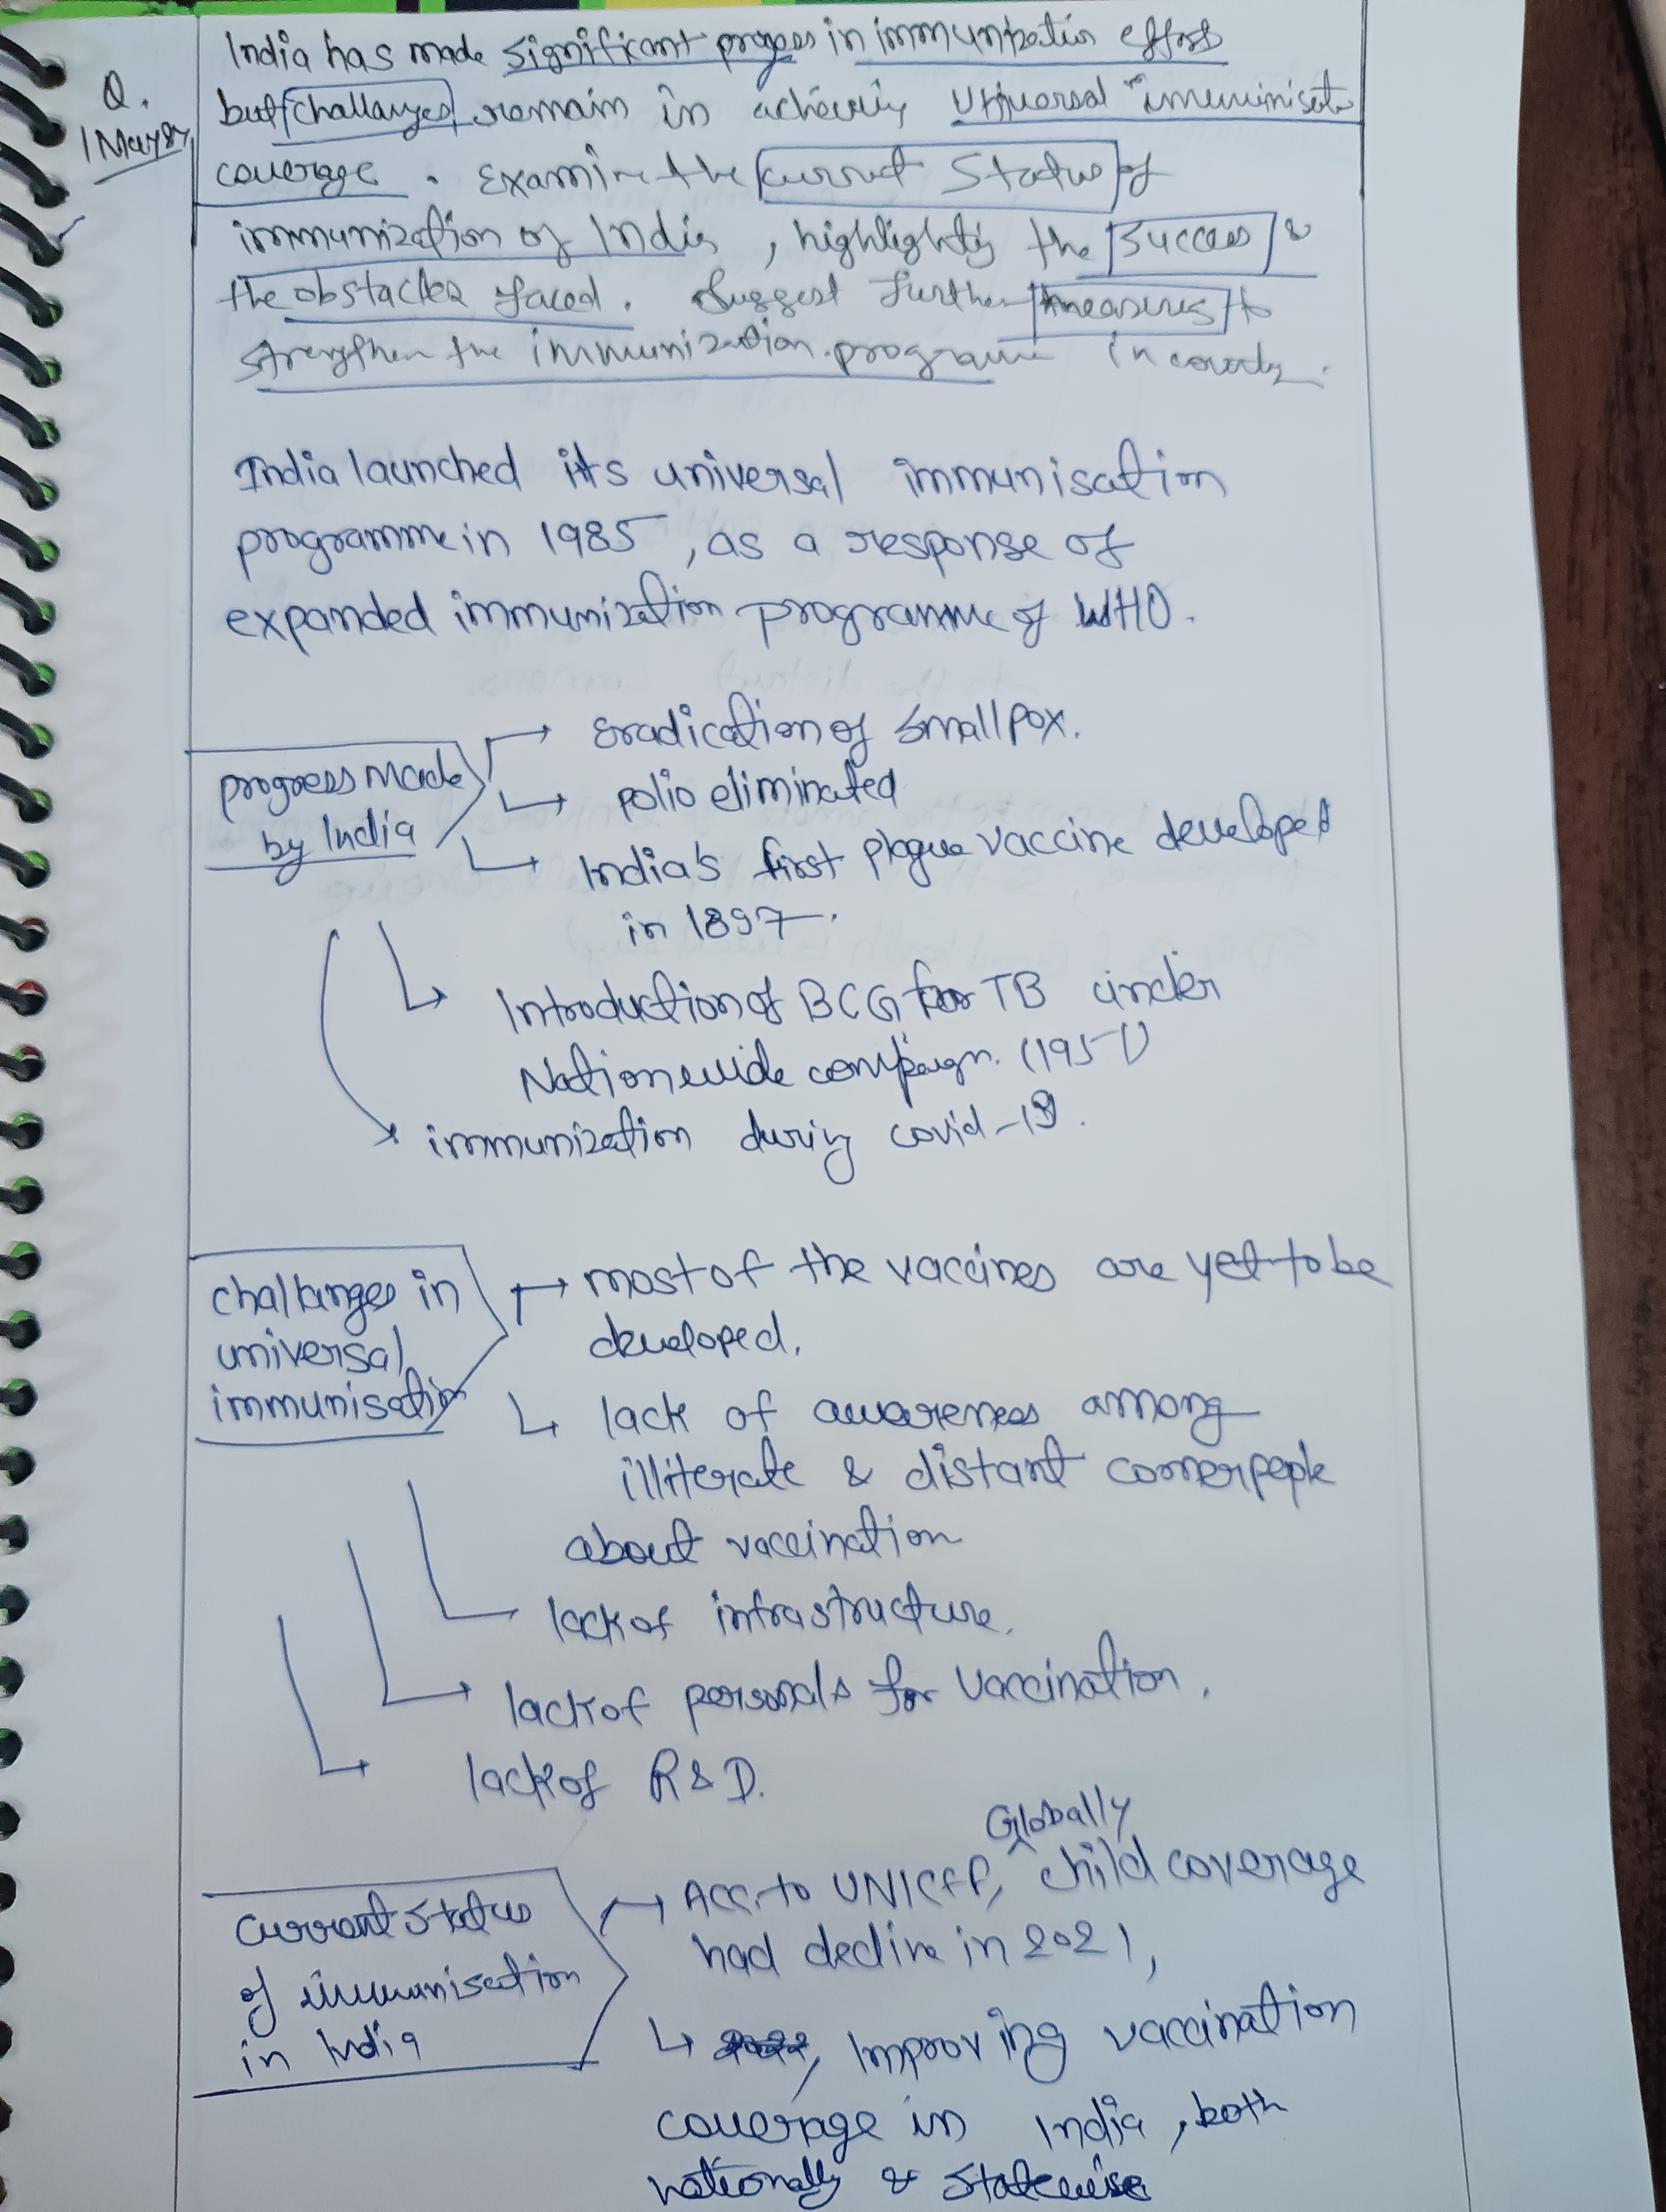 India has made significant progress in immunization efforts
Q.
but challanges remain in achieving universal immunisate
1 May
coverage. Examine the current status of
immunization of India, highlightig the success &
the obstacles faced. Suggest further measures to
strengthen the immunization programe in country.
India launched its universal immunisation
programme in 1985, as a response of
expanded immunization programme of WHO.
progress made
by India
→ Eradication of Smallpox.
→ polio eliminated
→ India's first plague vaccine developed
in 1897.
→ Introduction of BCG for TB under
Nationwide campaign. (1951)
→ immunization during covid-19.
challanges in
universal
immunisation
→ most of the vaccines are yet to be
developed.
→ lack of awareness among
illiterate & distant corner people
about vaccination
lack of infrastructure.
→ lack of personals for vaccination.
→ lack of R&D.
Current Status
of immunisation
in India
→ Acc. to UNICEF, Globally child coverage
had decline in 2021,
→ Improving vaccination
coverage in India, both
nationally & statewise